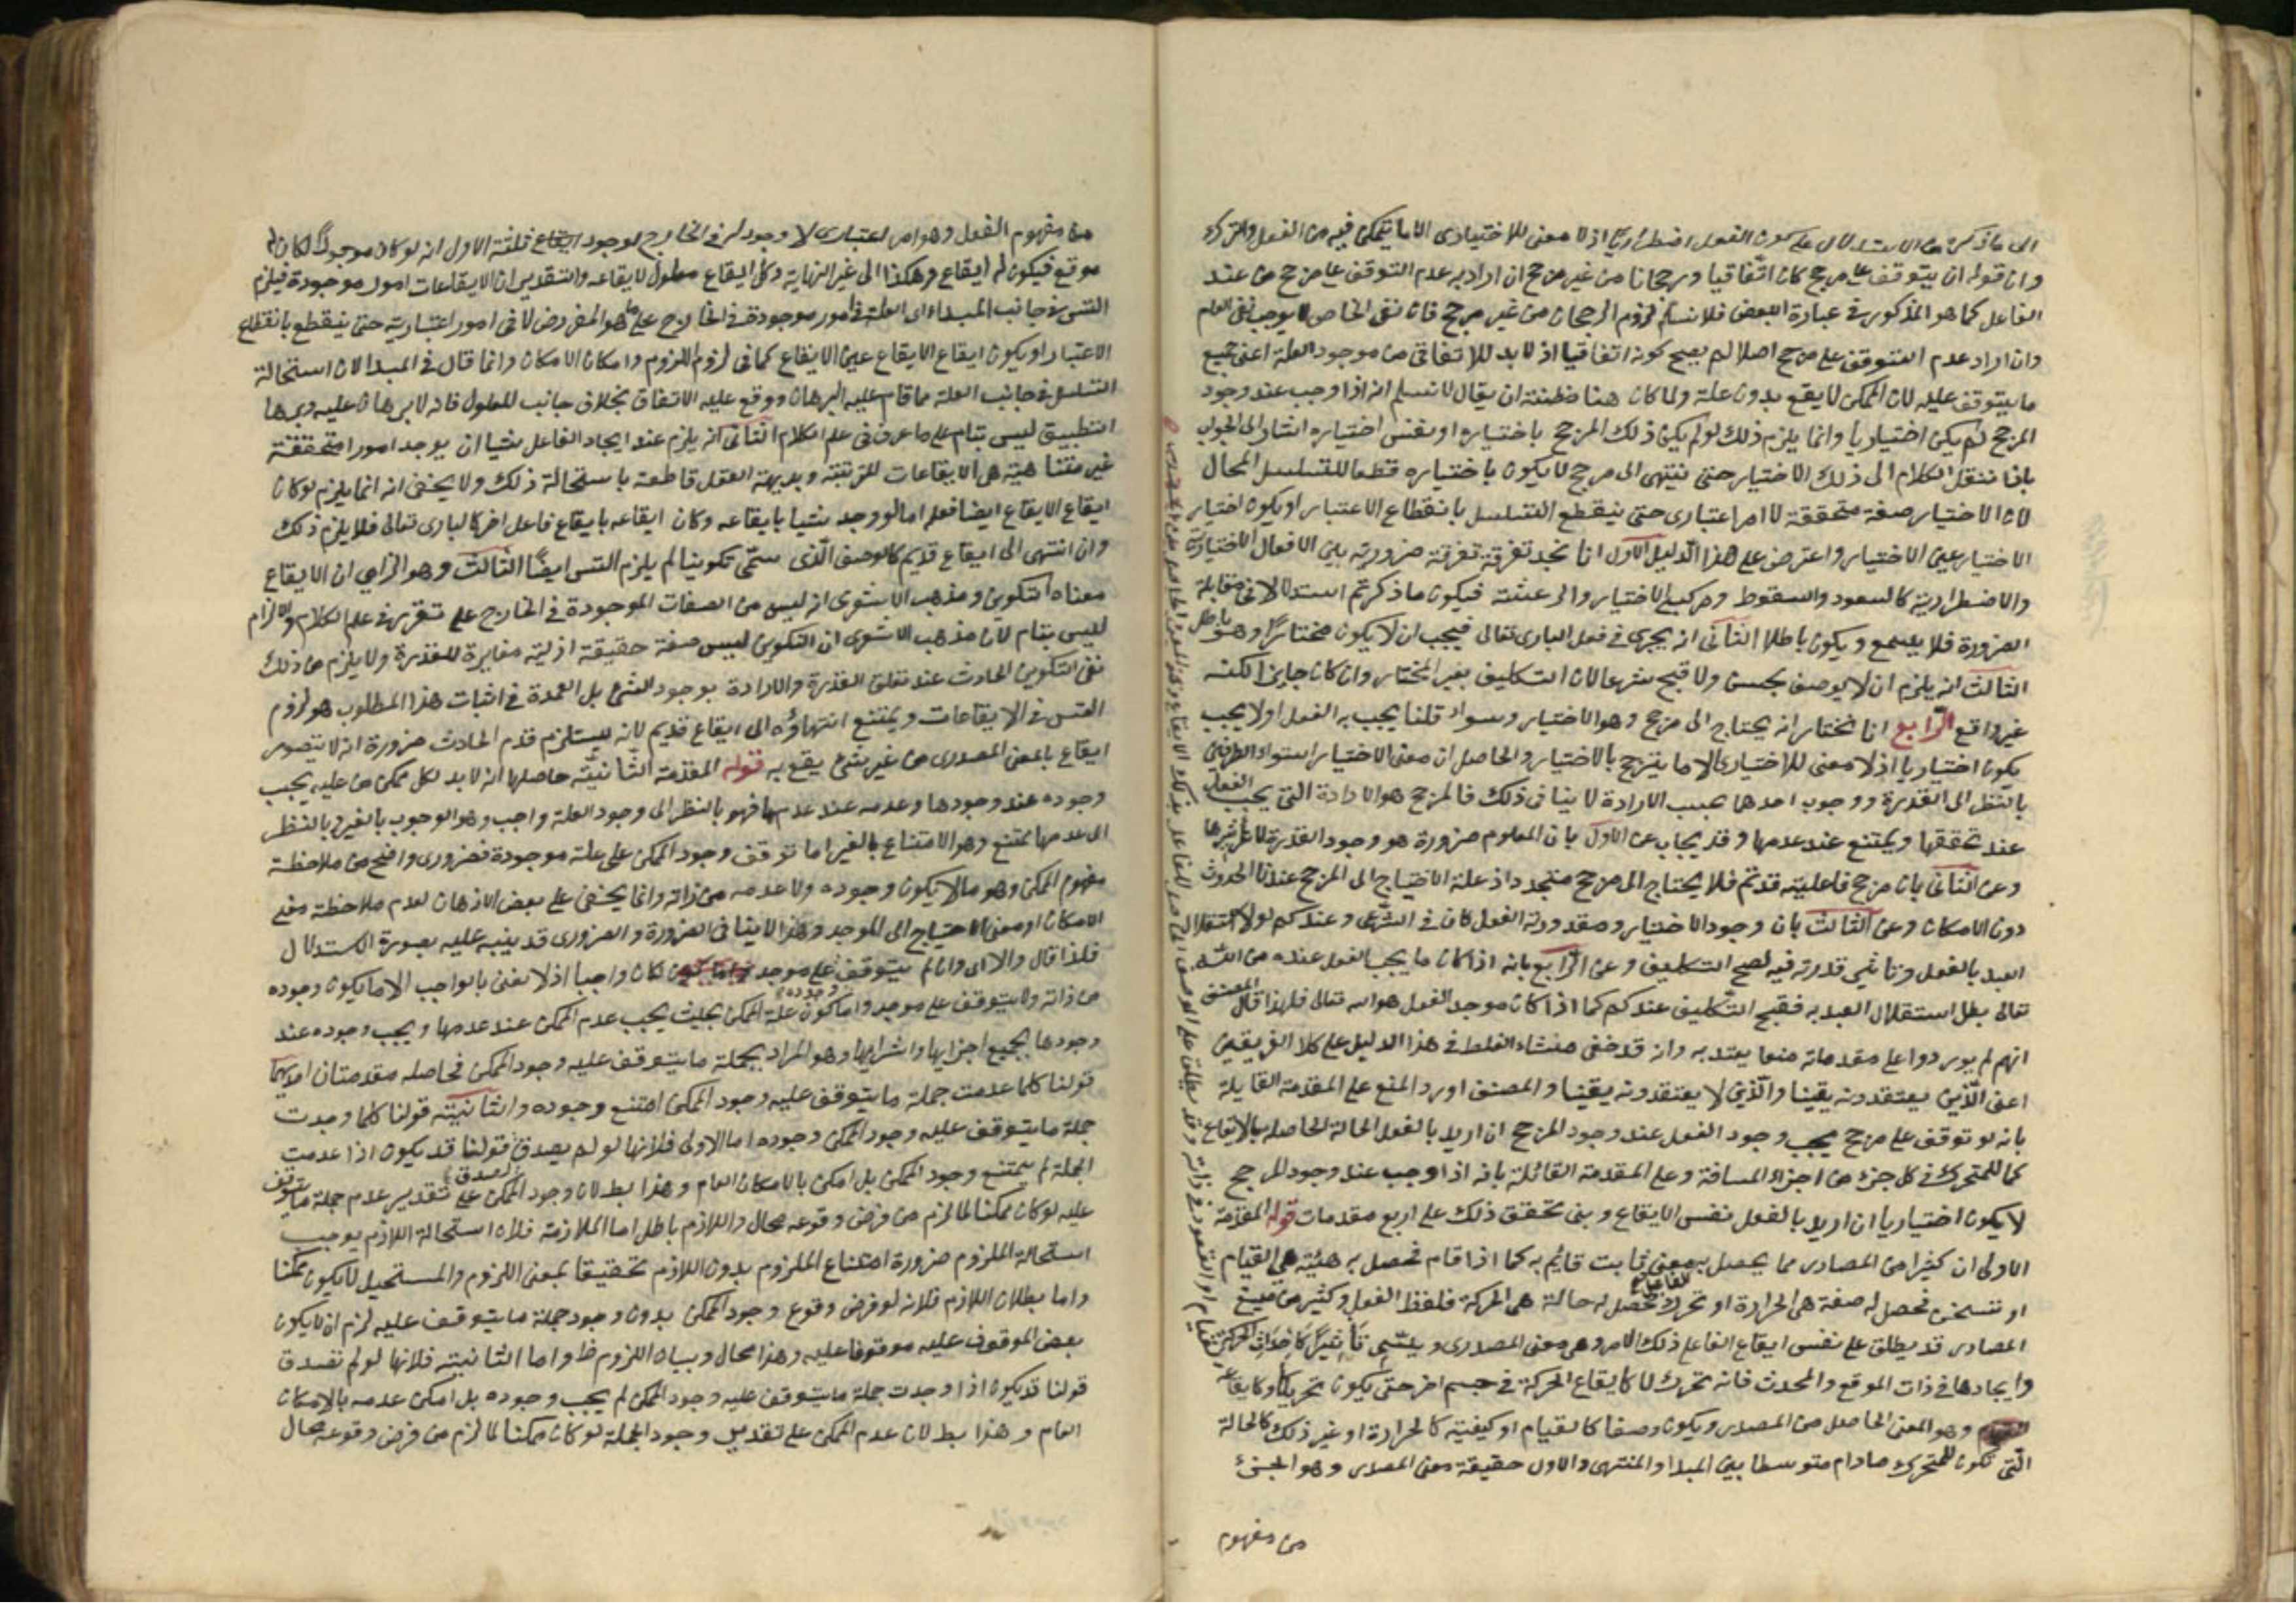 الى ما ذكر من الاستدلال على كون الفعل اضطراريا اذ لا معنى للاختيارى الا ما يتمكن فيه من الفعل والترك
وان قوله ان يتوقف على مرجح كان اتفاقيا ورجحانا من غير مرجح ان اراد به عدم التوقف على مرجح من عند
الفاعل كما هو المذكور فى عبارة البعض فلا نسلم لزوم الرجحان من غير مرجح فان نفى الخاص لا يوجب نفى العام
وان اراد عدم التوقف على مرجح اصلا لم يصح كونه اتفاقيا اذ لا بد للاتفاقى من موجود العلة اعنى جميع
ما يتوقف عليه لان الممكن لا يقع بدون علة ولما كان هنا مظنة ان يقال لا نسلم انه اذا وجب عند وجود
المرجح لم يكن اختياريا وانما يلزم ذلك لو لم يكن ذلك المرجح باختياره او نفس اختياره اشار الى الجواب
بانا ننقل الكلام الى ذلك الاختيار حتى ينتهى الى مرجح لا يكون باختياره قطعا للتسلسل المحال
لان الاختيار صفة متحققة لا امر اعتبارى حتى ينقطع التسلسل بانقطاع الاعتبار او يكون اختيار
الاختيار عين الاختيار واعترض على هذا الدليل الاول انا نجد تفرقة تفرقة ضرورية بين الافعال الاختيارية
والاضطرارية كالسعود والسقوط وحركتى الاختيار والرعشة فيكون ما ذكرتم استدلالا فى مقابلة
الضرورة فلا يسمع ويكون باطلا الثانى انه يجرى فى فعل البارى تعالى فيجب ان لا يكون مختارا وهو باطل
الثالث انه يلزم ان لا يوصف بحسن ولا قبح شرعا لان التكليف بغير المختار وان كان جايزا لكنه
غير واقع الرابع انا نختار انه يحتاج الى مرجح وهو الاختيار وسواء قلنا يجب به الفعل او لا يجب
يكون اختياريا اذ لا معنى للاختيارى الا ما يترجح بالاختيار والحاصل ان معنى الاختيار استواء الطرفين
بالنظر الى القدرة ووجوب احدهما بحسب الارادة لا ينافى ذلك فالمرجح هو الارادة التى يجب الفعل
عند تحققها ويمتنع عند عدمها وقد يجاب عن الاول بان المعلوم ضرورة هو وجود القدرة لا تأثيرها
وعن الثانى بان مرجح فاعليته قديم فلا يحتاج الى مرجح متجدد اذ علة الاحتياج الى المرجح عندنا الحدوث
دون الامكان وعن الثالث بان وجود الاختيار ومقدورية الفعل كاف فى الشرعى وعندكم لولا استقلال
العبد بالفعل وتاثير قدرته فيه لصح التكليف وعن الرابع بانه اذا كان ما يجب الفعل عنده من الله
تعالى بطل استقلال العبد به فقبح التكليف عندكم كما اذا كان موجد الفعل هو الله تعالى فلهذا قال المصنف
انهم لم يوردوا على مقدماته منعا يعتد به وان قد خفى منشاء الغلط فى هذا الدليل على كلا الفريقين
اعنى الذين يعتقدونه يقينا والذين لا يعتقدونه يقينا والمصنف اورد المنع على المقدمة القايلة
بانه لو توقف على مرجح يجب وجود الفعل عند وجود المرجح ان اريد بالفعل الحالة الحاصلة بالايقاع
كما للمتحرك فى كل جزء من اجزاء المسافة وعلى المقدمة القائلة بانه اذا وجب عند وجود المرجح
لا يكون اختياريا ان اريد بالفعل نفس الايقاع وبنى تحقق ذلك على اربع مقدمات قوله المقدمة
الاولى ان كثيرا من المصادر مما يحصل به معنى ثابت قائم به كما اذا قام فحصل به هيئة هى القيام
او تسخن فحصل له صفة هى الحرارة او تحرك فحصل له حالة هى الحركة فلفظ الفعل وكثير من صيغ
المصادر قد يطلق على نفس ايقاع الفاعل ذلك الامر وهو معنى المصدرى ويسمى تأثيرا كاحداث الحركة
وايجادها فى ذات الموقع والمحدث فانه تحرك لا كايقاع الحركة فى جسم اخر حتى يكون تحريكا وكايقاع
القيام وهو المعنى الحاصل من المصدر ويكون وصفا كالقيام او كيفية كالحرارة او غير ذلك كالحالة
التى تكون للمتحرك ما دام متوسطا بين المبدا والمنتهى والاول حقيقة معنى المصدر وهو الجزء
من مفهوم
من مفهوم الفعل وهو امر اعتبارى لا وجود له فى الخارج لوجوه ثلثة الاول انه لو كان موجودا لكان له
موقع فيكون له ايقاع وهكذا الى غير النهاية وكل ايقاع معلول لايقاعه والتقدير ان الايقاعات امور موجودة فيلزم
التس فى جانب المبداء اى العلة فى امور موجودة فى الخارج على ما هو المفروض لا فى امور اعتبارية حتى ينقطع بانقطاع
الاعتبار او يكون ايقاع الايقاع عين الايقاع كما فى لزوم اللزوم وامكان الامكان وانما قال فى المبدا لان استحالة
التسلسل فى جانب العلة مما قام عليه البرهان ووقع عليه الاتفاق بخلاف جانب المعلول فانه لا برهان عليه وبرهان
التطبيق ليس بتام على ما عرف فى علم الكلام الثانى انه يلزم عند ايجاد الفاعل شيا ان يوجد امورا متحققة
غير متناهية هى الايقاعات المترتبة وبديهة العقل قاطعة باستحالة ذلك ولا يخفى انه انما يلزم لو كان
ايقاع الايقاع ايضا فعله اما لو وجد شيا بايقاعه وكان ايقاعه بايقاع فاعل اخر كالبارى تعالى فلا يلزم ذلك
وان انتهى الى ايقاع قديم كالوصف الذى سمى تكوينا لم يلزم التس ايضا الثالث وهو الزامى ان الايقاع
معناه التكوين ومذهب الاشعرى انه ليس من الصفات الموجودة فى الخارج على تقرير فى علم الكلام والالزام
ليس بتام لان مذهب الاشعرى ان التكوين ليس صفة حقيقة ازلية مغايرة للقدرة ولا يلزم من ذلك
نفى التكوين الحادث عند تعلق القدرة والارادة بوجود الشئ بل العمدة فى اثبات هذا المطلوب هو لزوم
التس فى الايقاعات ويمتنع انتهاؤه الى ايقاع قديم لانه يستلزم قدم الحادث ضرورة انه لا يتصور
ايقاع بالمعنى المصدرى من غير شئ يقع به قوله المقدمة الثانية حاصلها انه لا بد لكل ممكن من علة يجب
وجوده عند وجودها وعدمه عند عدمها فهو بالنظر الى وجود العلة واجب وهو الوجوب بالغير وبالنظر
الى عدمها ممتنع وهو الامتناع بالغير اما توقف وجود الممكن على علة موجودة فضرورى واضح من ملاحظة
مفهوم الممكن وهو ما لا يكون وجوده ولا عدمه من ذاته وانما يخفى على بعض الاذهان لعدم ملاحظة معنى
الامكان او معنى الاحتياج الى الموجد وهذا لا ينافى الضرورة والضرورى قد ينبه عليه بصورة الاستدلال
فلذا قال والا اى وان لم يتوقف على موجد لكان واجبا اذ لا نعنى بالواجب الا ما يكون وجوده
من ذاته ولا يتوقف على موجد واما كون علة الممكن بحيث يجب عدم الممكن عند عدمها ويجب وجوده عند
وجودها بجميع اجزايها وشرايطها وهو المراد بجملة ما يتوقف عليه وجود الممكن فحاصله مقدمتان احديهما
قولنا كلما عدمت جملة ما يتوقف عليه وجود الممكن امتنع وجوده والثانية قولنا كلما وجدت
جملة ما يتوقف عليه وجود الممكن وجوده اما الاولى فلانها لو لم يصدق لصدق قولنا قد يكون اذا عدمت
الجملة لم يمتنع وجود الممكن بل امكن بالامكان العام وهذا بط لان وجود الممكن على تقدير عدم جملة ما يتوقف
عليه لو كان ممكنا لما لزم من فرض وقوعه محال واللازم باطل اما الملازمة فلان استحالة اللازم يوجب
استحالة الملزوم ضرورة امتناع الملزوم بدون اللازم تحقيقا بمعنى اللزوم والمستحيل لا يكون ممكنا
واما بطلان اللازم فلانه لو فرض وقوع وجود الممكن بدون وجود جملة ما يتوقف عليه لزم ان لا يكون
بعض الموقوف عليه موقوفا عليه وهذا محال وبيان اللزوم ظ واما الثانية فلانها لو لم تصدق
قولنا قد يكون اذا وجدت جملة ما يتوقف عليه وجود الممكن لم يجب وجوده بل امكن عدمه بالامكان
العام وهذا بط لان عدم الممكن على تقدير وجود الجملة لو كان ممكنا لما لزم من فرض وقوعه محال